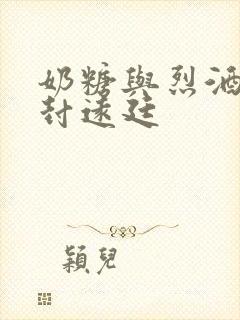 奶糖與烈酒
封遠廷
穎兒